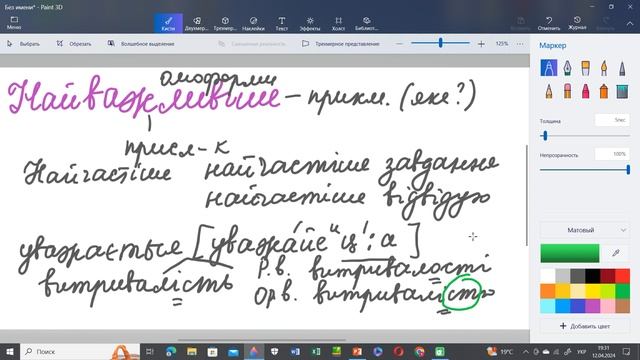 Без имени* - Paint 3D
Меню Кисти Двухмер... Тренажер... Текст Эффекты Холст Библиот... Вставить Отменить Журнал Вернуть
Выбрать Обрезать Волшебное выделение Смешанная реальность Трехмерное представление 125%
Маркер
омоформи
Найважливіше – прикм. (яке?)
присл-к
Найчастіше найчастіше завдання
найчастіше відвідую
уважається [уважаĭец':а]
Р.в. витривалості
витривалість
Ор.в. витривалістю
Толщина 5пкс
Непрозрачность 100%
Матовый
Добавить цвет
Поиск
19°C УКР 19:31
12.04.2024